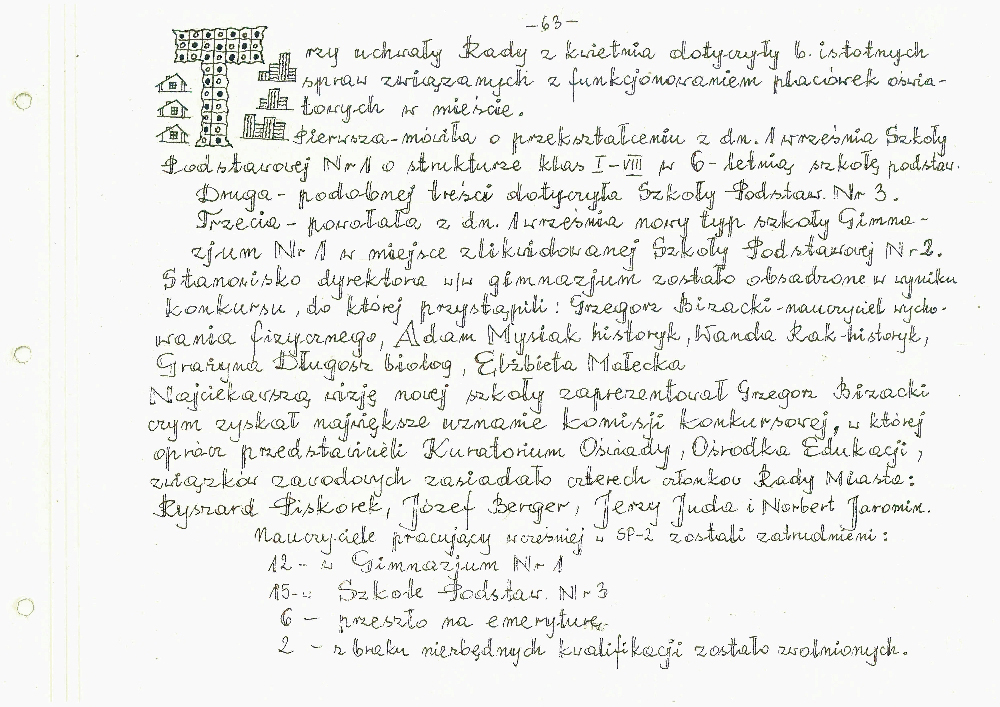 -63-
Trzy uchwały Rady z kwietnia dotyczyły b. istotnych
spraw związanych z funkcjonowaniem placówek oświa-
towych w mieście.
Pierwsza-mówiła o przekształceniu z dn. 1 września Szkoły
Podstawowej Nr 1 o strukturze klas I-VIII w 6-letnią szkołę podstaw.
Druga- podobnej treści dotyczyła Szkoły Podstaw. Nr 3.
Trzecia- powołała z dn. 1 września nowy typ szkoły Gimna-
zjum Nr 1 w miejsce zlikwidowanej Szkoły Podstawowej Nr 2.
Stanowisko dyrektora w/w gimnazjum zostało obsadzone w wyniku
konkursu, do której przystąpili: Grzegorz Bizacki-nauczyciel wycho-
wania fizycznego, Adam Mysiak historyk, Wanda Rak-historyk,
Grażyna Długosz biolog, Elżbieta Małecka
Najciekawszą wizję nowej szkoły zaprezentował Grzegorz Bizacki
czym zyskał największe uznanie komisji konkursowej, w której
oprócz przedstawicieli Kuratorium Oświady, Ośrodka Edukacji,
związków zawodowych zasiadało czterech członków Rady Miasta:
Ryszard Piskorek, Józef Berger, Jerzy Juda i Norbert Jaromin.
Nauczyciele pracujący wcześniej w SP-2 zostali zatrudnieni:
12- w Gimnazjum Nr 1
15-w Szkole Podstaw. Nr 3
6 - przeszło na emeryturę
2 - z braku niezbędnych kwalifikacji zostało zwolnionych.